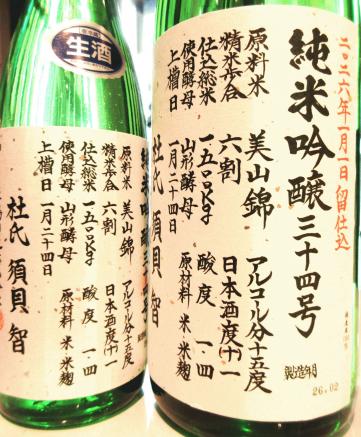 二〇二六年一月一日留仕込
純米吟醸三十四号
原料米 美山錦 アルコール分十五度
精米歩合 六割 日本酒度(十)一
仕込総米 一五〇〇kg 酸度 一・四
使用酵母 山形酵母 原材料 米 米麹
上槽日 一月二十四日
杜氏 須貝 智
製造年月
26.02
生酒
純米吟醸三 号
原料米 美山錦 アルコール分十五度
精米歩合 六割 日本酒度(十)一
仕込総米 一五〇〇kg 酸度 一・四
使用酵母 山形酵母 原材料 米 米麹
上槽日 一月二十四日
杜氏 須貝 智